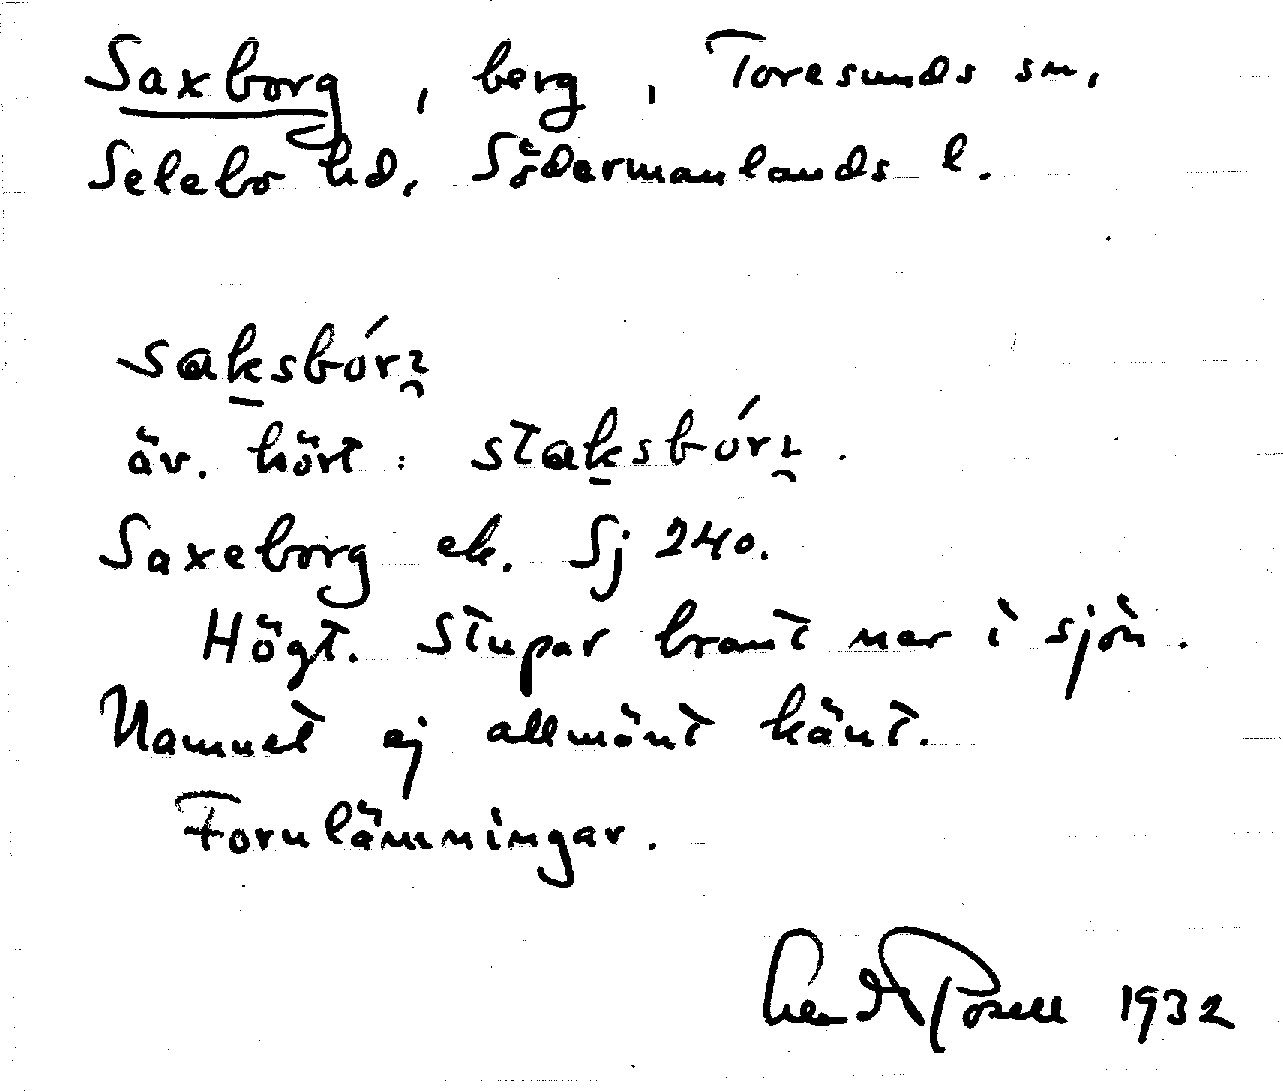 Saxborg, berg, Toresunds sn,
Selebo hd, Södermanlands l.
saksbórʒ
äv. hört: staksbórʒ.
Saxeborg ek. Sj 240.
Högt. Stupar brant ner i sjön.
Namnet ej allmänt känt.
Fornlämningar.
1932